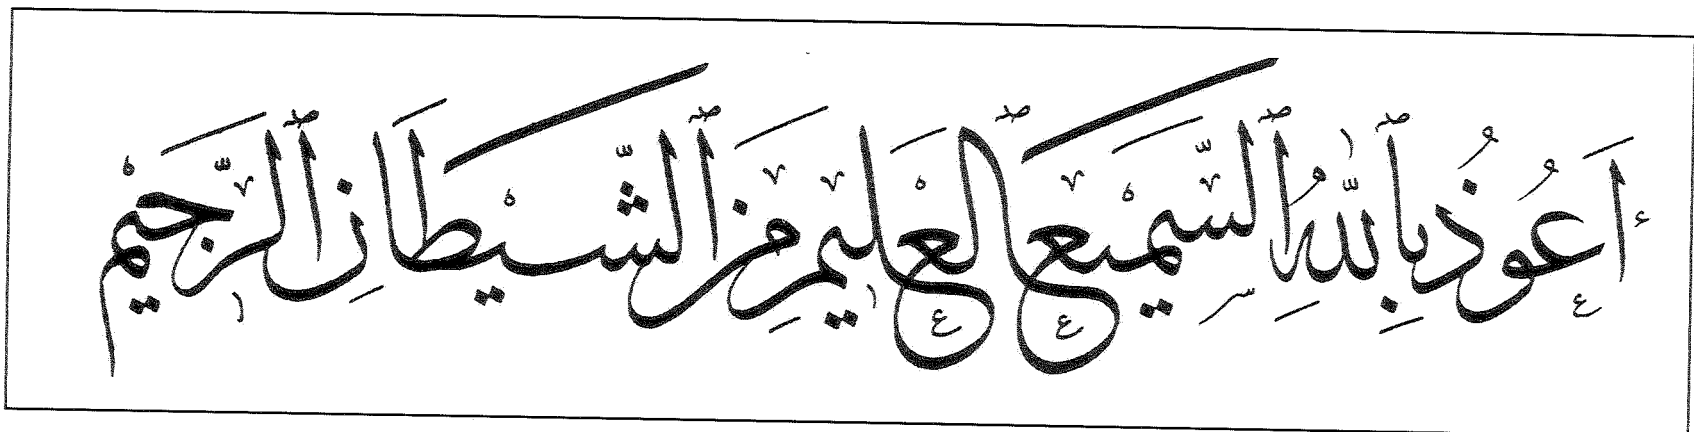 أَعُوذُ بِٱللَّهِ ٱلسَّمِيْعِ ٱلْعَلِيمِ مِنَ ٱلشَّيْطَانِ ٱلرَّجِيْمِ